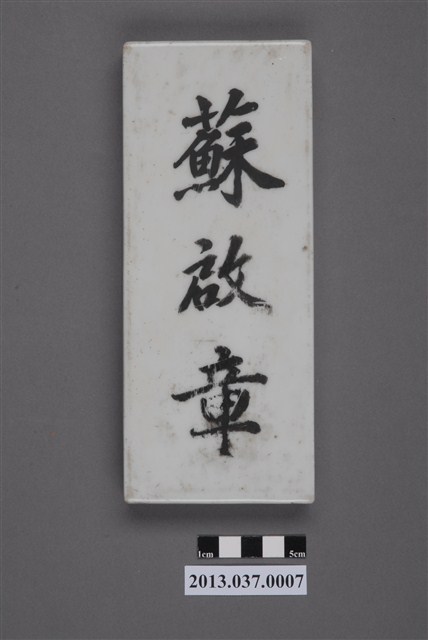 蘇啟章
1cm 5cm
2013.037.0007